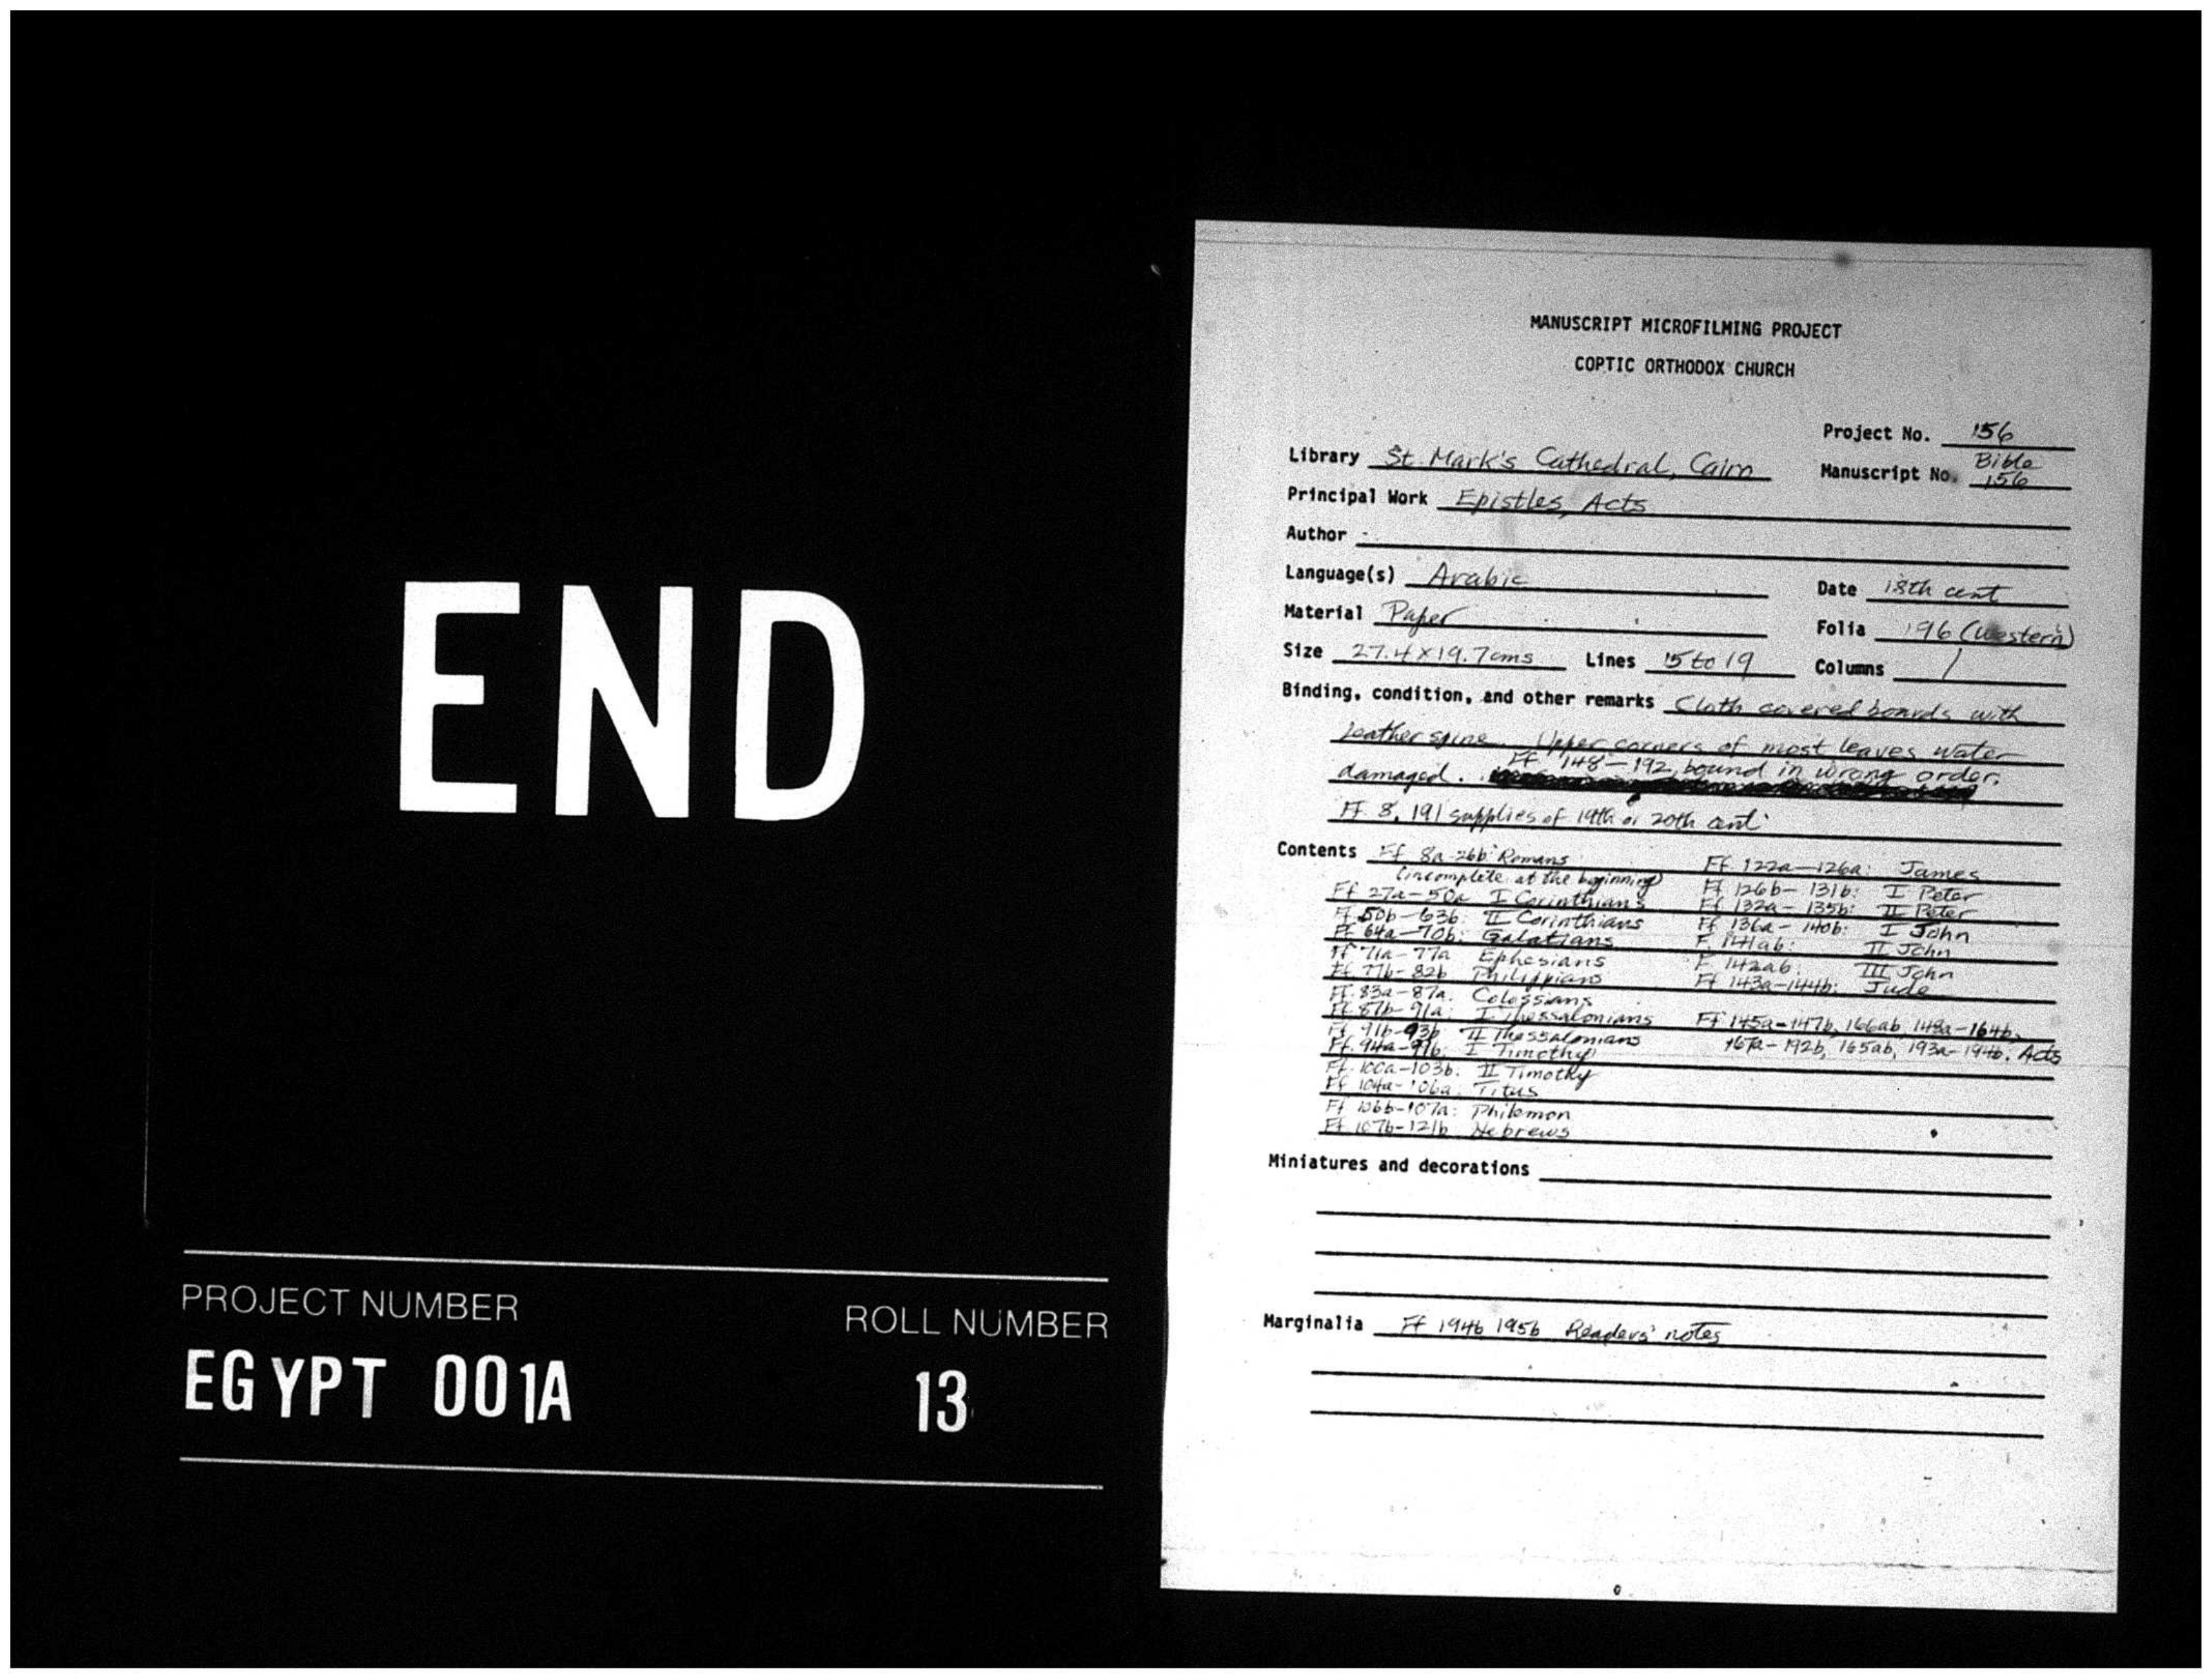 END
PROJECT NUMBER
ROLL NUMBER
EGYPT 001A
13
MANUSCRIPT MICROFILMING PROJECT
COPTIC ORTHODOX CHURCH
Project No. 156
Library St. Mark's Cathedral, Cairo
Manuscript No. Bible 156
Principal Work Epistles, Acts
Author -
Language(s) Arabic
Date 18th cent
Material Paper
Folia 196 (Western)
Size 27.4 x 19.7 cms Lines 15 to 19 Columns 1
Binding, condition, and other remarks Cloth covered boards with
leather spine. Upper corners of most leaves water
damaged. Ff 148-192 bound in wrong order.
Ff. 8, 191 supplies of 19th or 20th cent.
Contents Ff 8a-26b: Romans
(incomplete at the beginning)
Ff 27a-50a I Corinthians
Ff 50b-63b: II Corinthians
Ff 64a-70b: Galatians
Ff 71a-77a Ephesians
Ff 77b-82b Philippians
Ff. 83a-87a. Colossians
Ff 87b-91a: I Thessalonians
Ff. 91b-93b II Thessalonians
Ff. 94a-99b: I Timothy
Ff. 100a-103b: II Timothy
Ff 104a-106a: Titus
Ff 106b-107a: Philemon
Ff 107b-121b Hebrews
Ff. 122a-126a: James
Ff 126b-131b: I Peter
Ff 132a-135b: II Peter
Ff 136a-140b: I John
F. 141ab: II John
F 142ab. III John
Ff 143a-144b: Jude
Ff 145a-147b, 166ab, 148a-164b,
167a-192b, 165ab, 193a-194b. Acts
Miniatures and decorations
Marginalia Ff 194b 195b Readers' notes